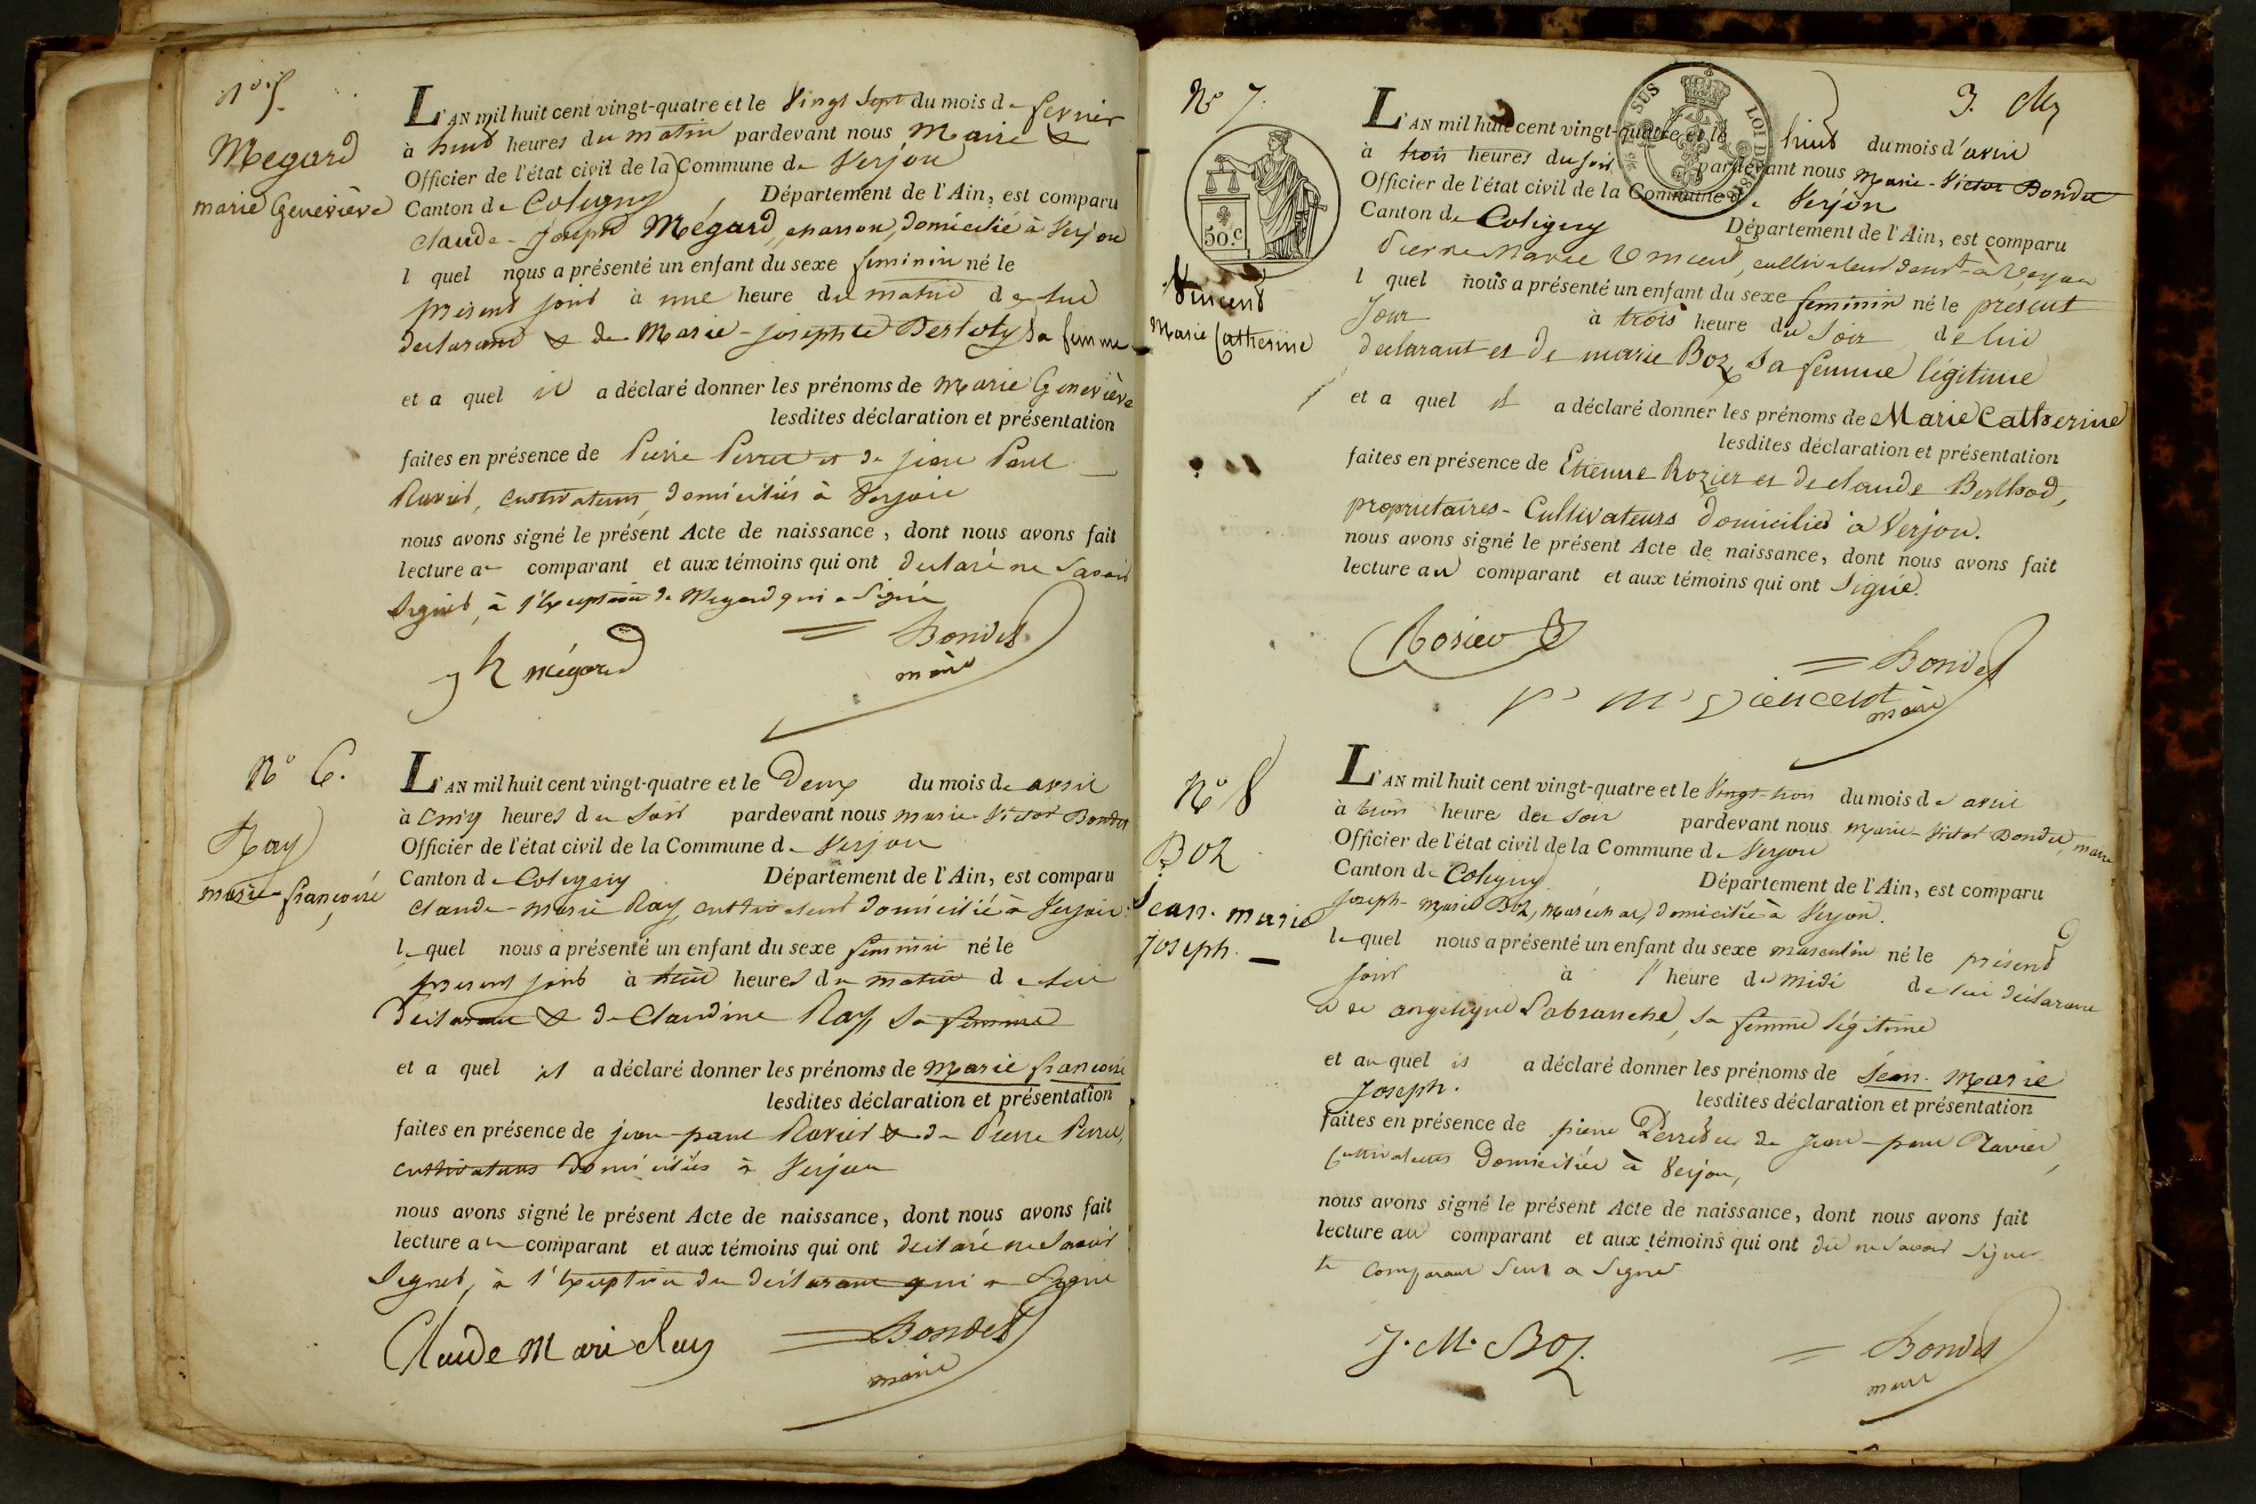 N° 5.
Megard
marie Geneviève
L'AN mil huit cent vingt-quatre et le Vingt Sept du mois de fevrier
à huit heures du matin pardevant nous Maire &
Officier de l'état civil de la Commune de Verjon
Canton de Coligny Département de l'Ain, est comparu
Claude-Joseph Mégard, domicilié à Verjon
l quel nous a présenté un enfant du sexe feminin né le
present jour à une heure du matin de lui
declarant & de Marie-josephte sa femme
et a quel il a déclaré donner les prénoms de Marie Geneviève
lesdites déclaration et présentation
faites en présence de Pierre Perret et de jean Paul
Ravier, cultivateurs, domiciliés à Verjon
nous avons signé le présent Acte de naissance, dont nous avons fait
lecture au comparant et aux témoins qui ont declaré ne Savoir
Signer, à l'Exception de Megard qui a Signé
Bondet
maire
mégard
N° 6.
Ray
marie françoise
L'AN mil huit cent vingt-quatre et le Deux du mois de avril
à Cinq heures du Soir pardevant nous marie-Victor Bondet
Officier de l'état civil de la Commune de Verjon
Canton de Coligny Département de l'Ain, est comparu
Claude-Marie Ray cultivateur domicilié à Verjon
le quel nous a présenté un enfant du sexe feminin né le
present jour à huit heures du matin de lui
declarant & de Claudine Ray, sa femme
et a quel il a déclaré donner les prénoms de Marie françoise
lesdites déclaration et présentation
faites en présence de jean-paul Ravier & de Pierre Perret,
cultivateurs domiciliés à Verjon
nous avons signé le présent Acte de naissance, dont nous avons fait
lecture au comparant et aux témoins qui ont declaré ne Savoir
Signer, à l'Exception du declarant qui a Signé
Claude Mari Ray
Bondet
maire
N° 7.
3.
50.c
TIMBRE
SUS
LOI DE 1816
Vincent
Marie Catherine
L'AN mil huit cent vingt-quatre et le huit du mois d'avril
à trois heures du soir pardevant nous Marie-Victor Bondet
Officier de l'état civil de la Commune de Verjon
Canton de Coligny Département de l'Ain, est comparu
Pierre Marie Vincent, cultivateur demt à Verjon
l quel nous a présenté un enfant du sexe feminin né le present
Jour à trois heure du Soir de lui
declarant et de marie Boz, Sa femme légitime
et a quel il a déclaré donner les prénoms de Marie Catherine
lesdites déclaration et présentation
faites en présence de Etienne Rozier et de claude Berthod,
proprietaires-Cultivateurs domiciliés à Verjon.
nous avons signé le présent Acte de naissance, dont nous avons fait
lecture au comparant et aux témoins qui ont Signé.
Rosier
Bondet
P M Viencent
maire
N° 8
Boz
Jean-marie
joseph.
L'AN mil huit cent vingt-quatre et le Vingt-trois du mois de avril
à trois heure du soir pardevant nous Marie-Victor Bondet, maire
Officier de l'état civil de la Commune de Verjon
Canton de Coligny Département de l'Ain, est comparu
Joseph-Marie Boz, Maréchal, domicilié à Verjon.
le quel nous a présenté un enfant du sexe masculin né le présent
jour à heure de midi de lui déclarant
& de angelique Labranche, sa femme légitime
et au quel il a déclaré donner les prénoms de Jean-Marie
Joseph.
lesdites déclaration et présentation
faites en présence de pierre Perret et de Jean-paul Ravier,
Cultivateurs domiciliés à Verjon,
nous avons signé le présent Acte de naissance, dont nous avons fait
lecture au comparant et aux témoins qui ont dit ne savoir signer
le comparant Seul a Signé
J. M. Boz.
Bondet
maire